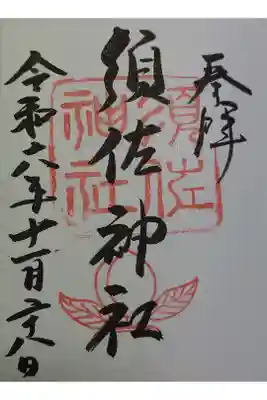 奉拝
須佐神社
須佐
神社
令和六年十一月二十八日